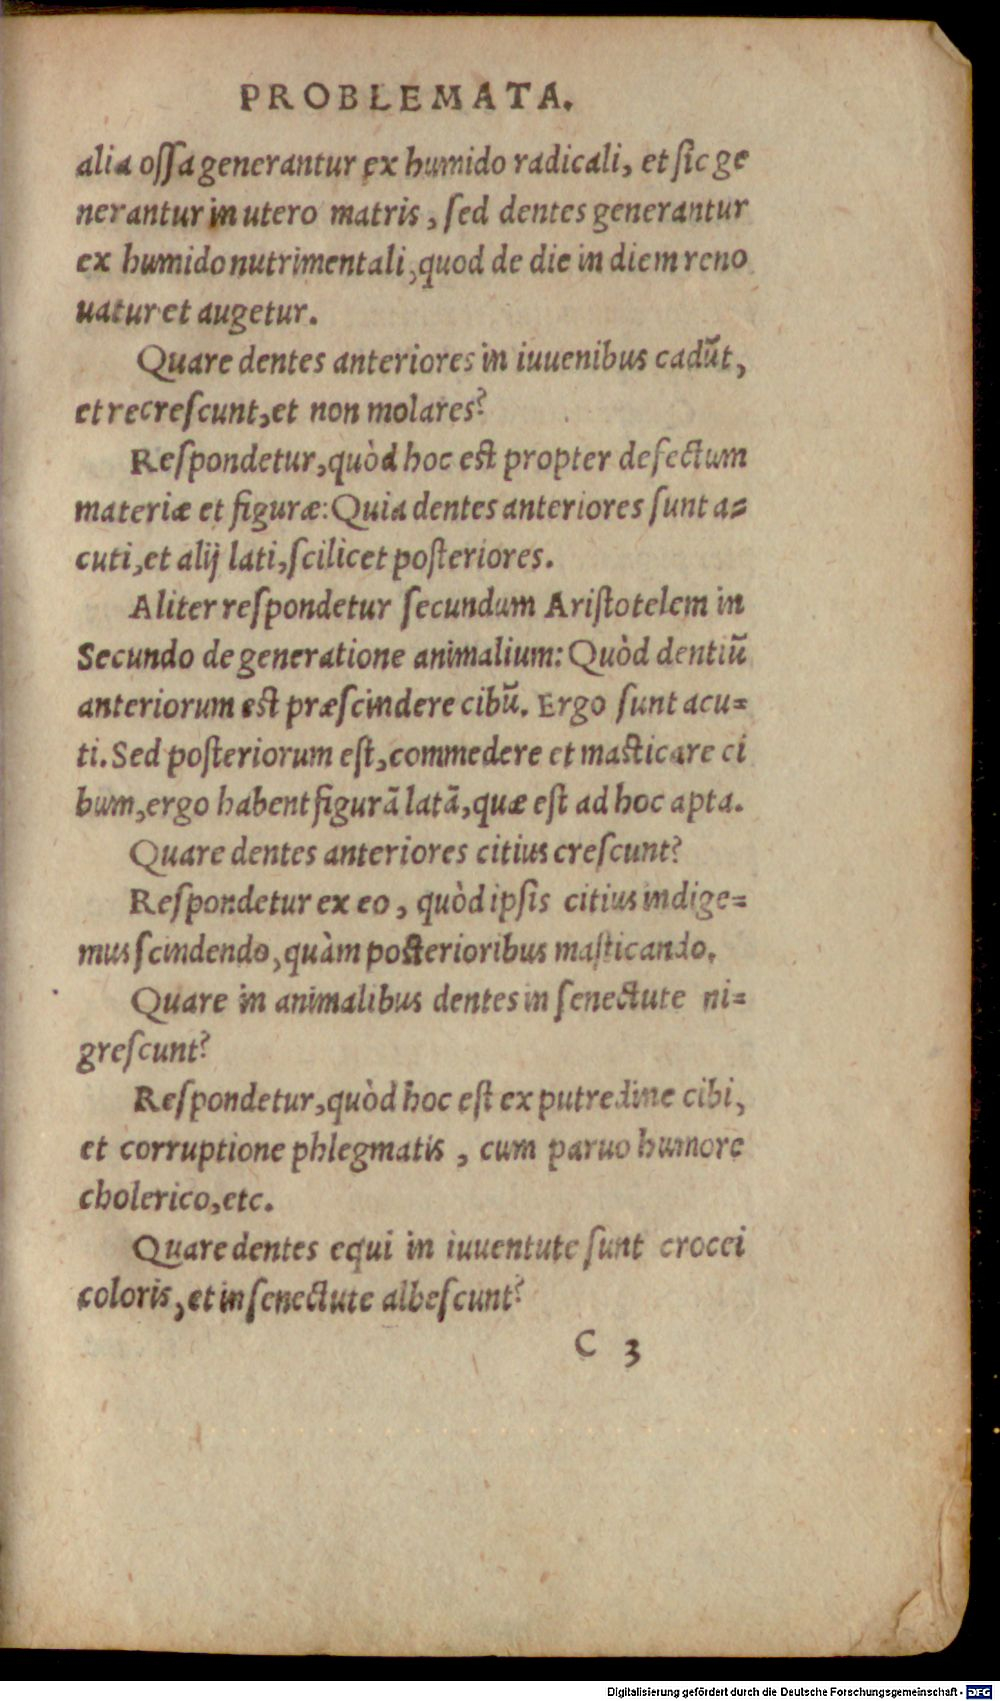 PROBLEMATA.
alia oſſa generantur ex humido radicali, et ſic ge
nerantur in utero matris, ſed dentes generantur
ex humido nutrimentali, quod de die in diem reno
uatur et augetur.
Quare dentes anteriores in iuuenibus cadũt,
et recreſcunt, et non molares?
Reſpondetur, quòd hoc eſt propter defectum
materiæ et figuræ: Quia dentes anteriores ſunt a=
cuti, et alij lati, ſcilicet poſteriores.
Aliter reſpondetur ſecundum Ariſtotelem in
Secundo de generatione animalium: Quòd dentiũ
anteriorum eſt præſcindere cibũ. Ergo ſunt acu=
ti. Sed poſteriorum eſt, commedere et maſticare ci
bum, ergo habent figurã latã, quæ eſt ad hoc apta.
Quare dentes anteriores citius creſcunt?
Reſpondetur ex eo, quòd ipſis citius indige=
mus ſcindendo, quàm poſterioribus maſticando.
Quare in animalibus dentes in ſenectute ni=
greſcunt?
Reſpondetur, quòd hoc eſt ex putredine cibi,
et corruptione phlegmatis, cum paruo humore
cholerico, etc.
Quare dentes equi in iuuentute ſunt crocei
coloris, et in ſenectute albeſcunt?
C 3
Digitalisierung gefördert durch die Deutsche Forschungsgemeinschaft - DFG